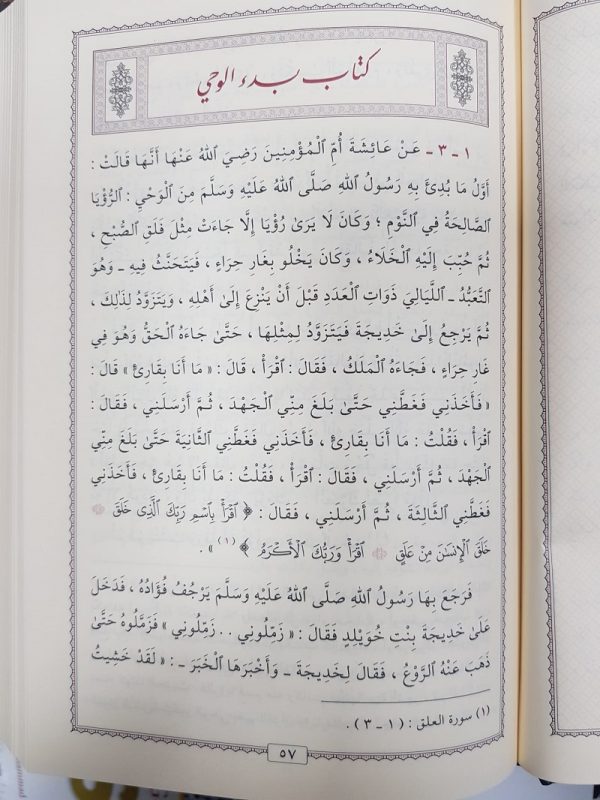 كتاب بدء الوحي
١ ـ ٣ ـ عَنْ عَائِشَةَ أُمِّ ٱلْمُؤْمِنِينَ رَضِيَ ٱللهُ عَنْهَا أَنَّهَا قَالَتْ :
أَوَّلُ مَا بُدِئَ بِهِ رَسُولُ ٱللهِ صَلَّى ٱللهُ عَلَيْهِ وَسَلَّمَ مِنَ ٱلْوَحْيِ : ٱلرُّؤْيَا
ٱلصَّالِحَةُ فِي ٱلنَّوْمِ ؛ وَكَانَ لَا يَرَىٰ رُؤْيَا إِلَّا جَاءَتْ مِثْلَ فَلَقِ ٱلصُّبْحِ ،
ثُمَّ حُبِّبَ إِلَيْهِ ٱلْخَلَاءُ ، وَكَانَ يَخْلُو بِغَارِ حِرَاءٍ ، فَيَتَحَنَّثُ فِيهِ ـ وَهُوَ
ٱلتَّعَبُّدُ ـ ٱللَّيَالِيَ ذَوَاتِ ٱلْعَدَدِ قَبْلَ أَنْ يَنْزِعَ إِلَىٰ أَهْلِهِ ، وَيَتَزَوَّدُ لِذَٰلِكَ ،
ثُمَّ يَرْجِعُ إِلَىٰ خَدِيجَةَ فَيَتَزَوَّدُ لِمِثْلِهَا ، حَتَّىٰ جَاءَهُ ٱلْحَقُّ وَهُوَ فِي
غَارِ حِرَاءٍ ، فَجَاءَهُ ٱلْمَلَكُ ، فَقَالَ : ٱقْرَأْ ، قَالَ : « مَا أَنَا بِقَارِئٍ » قَالَ :
« فَأَخَذَنِي فَغَطَّنِي حَتَّىٰ بَلَغَ مِنِّي ٱلْجَهْدَ ، ثُمَّ أَرْسَلَنِي ، فَقَالَ :
ٱقْرَأْ ، فَقُلْتُ : مَا أَنَا بِقَارِئٍ ، فَأَخَذَنِي فَغَطَّنِي ٱلثَّانِيَةَ حَتَّىٰ بَلَغَ مِنِّي
ٱلْجَهْدَ ، ثُمَّ أَرْسَلَنِي ، فَقَالَ : ٱقْرَأْ ، فَقُلْتُ : مَا أَنَا بِقَارِئٍ ، فَأَخَذَنِي
فَغَطَّنِي ٱلثَّالِثَةَ ، ثُمَّ أَرْسَلَنِي ، فَقَالَ : ﴿ ٱقْرَأْ بِٱسْمِ رَبِّكَ ٱلَّذِى خَلَقَ
خَلَقَ ٱلْإِنسَٰنَ مِنْ عَلَقٍ ٱقْرَأْ وَرَبُّكَ ٱلْأَكْرَمُ ﴾ (١) » .
فَرَجَعَ بِهَا رَسُولُ ٱللهِ صَلَّى ٱللهُ عَلَيْهِ وَسَلَّمَ يَرْجُفُ فُؤَادُهُ ، فَدَخَلَ
عَلَىٰ خَدِيجَةَ بِنْتِ خُوَيْلِدٍ فَقَالَ : « زَمِّلُونِي . . زَمِّلُونِي » فَزَمَّلُوهُ حَتَّىٰ
ذَهَبَ عَنْهُ ٱلرَّوْعُ ، فَقَالَ لِخَدِيجَةَ ـ وَأَخْبَرَهَا ٱلْخَبَرَ ـ : « لَقَدْ خَشِيتُ
(١) سورة العلق : ( ١ ـ ٣ ) .
٥٧